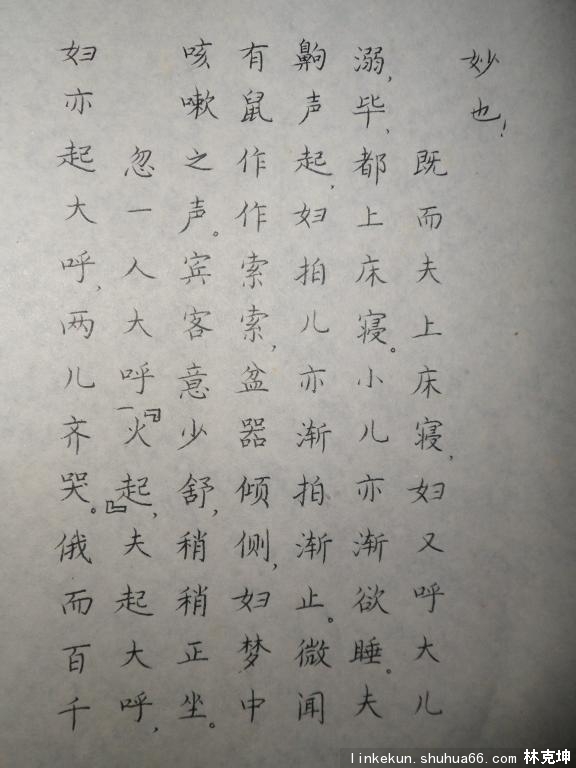 妙也！
既而夫上床寝，妇又呼大儿
溺，毕，都上床寝。小儿亦渐欲睡。夫
齁声起，妇拍儿亦渐拍渐止。微闻
有鼠作作索索，盆器倾侧，妇梦中
咳嗽之声。宾客意少舒，稍稍正坐。
忽一人大呼『火起』，夫起大呼，
妇亦起大呼，两儿齐哭。俄而百千
linkekun.shuhua66.com 林克坤